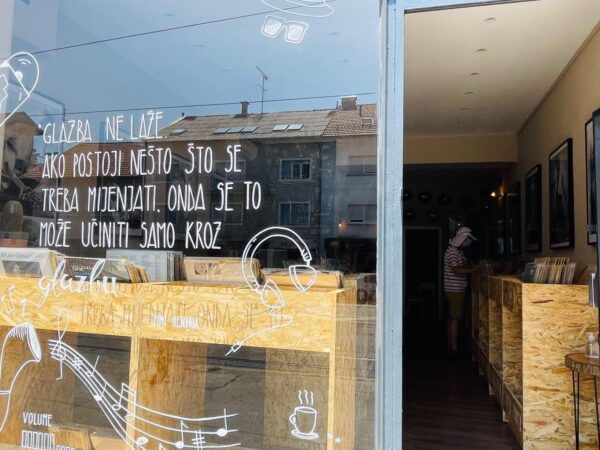 GLAZBA NE LAŽE.
AKO POSTOJI NEŠTO ŠTO SE
TREBA MIJENJATI, ONDA SE TO
MOŽE UČINITI SAMO KROZ
glazbu
JIMI HENDRIX
VOLUME